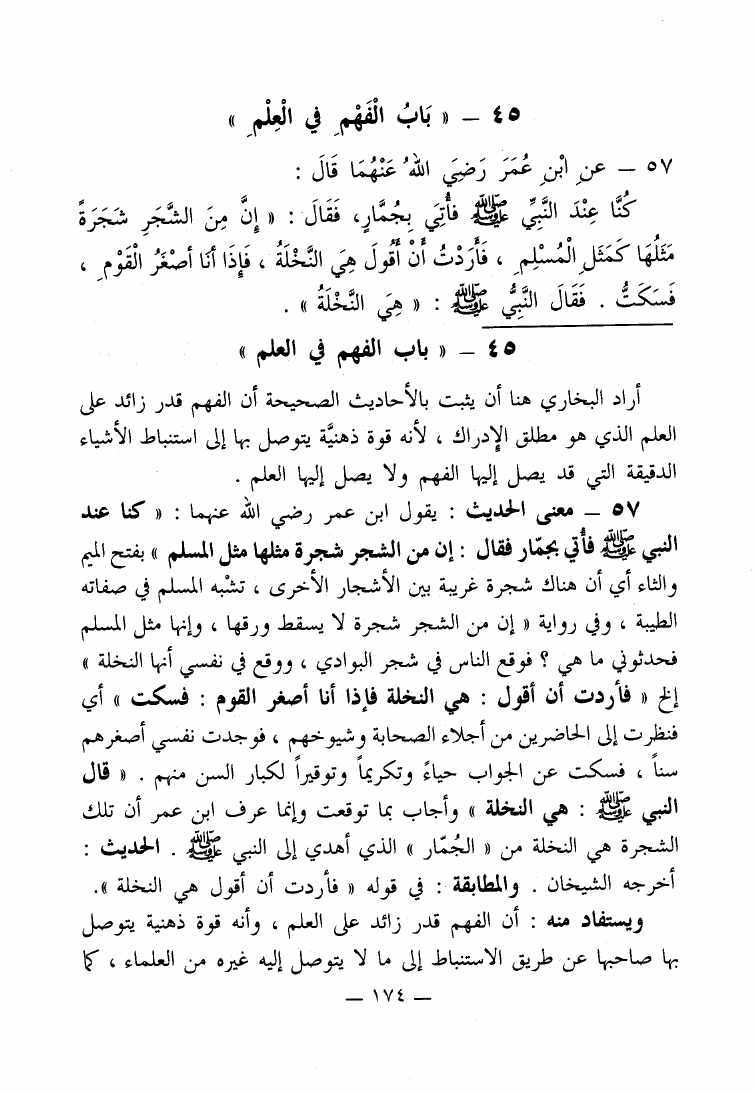 ٤٥ – « بَابُ الْفَهْمِ فِي الْعِلْمِ »
٥٧ – عنِ ابْنِ عُمَرَ رَضِيَ اللهُ عَنْهُمَا قَالَ :
كُنَّا عِنْدَ النَّبِيِّ ﷺ فأُتِيَ بِجُمَّارٍ، فَقَالَ : « إِنَّ مِنَ الشَّجَرِ شَجَرَةً
مَثَلُهَا كَمَثَلِ الْمُسْلِمِ ، فَأَرَدْتُ أَنْ أَقُولَ هِيَ النَّخْلَةُ ، فَإِذَا أنَا أصْغَرُ الْقَوْمِ ،
فَسَكَتُّ . فَقَالَ النَّبِيُّ ﷺ : « هِيَ النَّخْلَةُ » .
٤٥ – « باب الفهم في العلم »
أراد البخاري هنا أن يثبت بالأحاديث الصحيحة أن الفهم قدر زائد على
العلم الذي هو مطلق الإدراك ، لأنه قوة ذهنيَّة يتوصل بها إلى استنباط الأشياء
الدقيقة التي قد يصل إليها الفهم ولا يصل إليها العلم .
٥٧ – معنى الحديث : يقول ابن عمر رضي الله عنهما : « كنا عند
النبي ﷺ فأتي بجمّار فقال : إن من الشجر شجرة مثلها مثل المسلم » بفتح الميم
والثاء أي أن هناك شجرة غريبة بين الأشجار الأخرى ، تشْبه المسلم في صفاته
الطيبة ، وفي رواية « إن من الشجر شجرة لا يسقط ورقها ، وإنها مثل المسلم
فحدثوني ما هي ؟ فوقع الناس في شجر البوادي ، ووقع في نفسي أنها النخلة »
إلخ « فأردت أن أقول : هي النخلة فإذا أنا أصغر القوم : فسكت » أي
فنظرت إلى الحاضرين من أجلاء الصحابة وشيوخهم ، فوجدت نفسي أصغرهم
سناً ، فسكت عن الجواب حياءً وتكريماً وتوقيراً لكبار السن منهم . « قال
النبي ﷺ : هي النخلة » وأجاب بما توقعت وإنما عرف ابن عمر أن تلك
الشجرة هي النخلة من « الجُمّار » الذي أهدي إلى النبي ﷺ . الحديث :
أخرجه الشيخان . والمطابقة : في قوله « فأردت أن أقول هي النخلة ».
ويستفاد منه : أن الفهم قدر زائد على العلم ، وأنه قوة ذهنية يتوصل
بها صاحبها عن طريق الاستنباط إلى ما لا يتوصل إليه غيره من العلماء ، كما
– ١٧٤ –